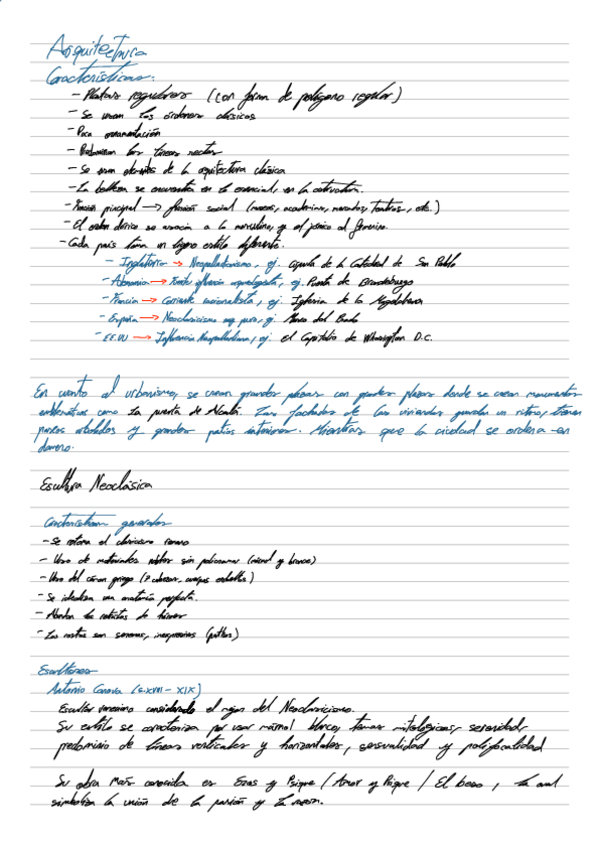 Arquitectura
Características.
- Plantas regulares (con forma de polígono regular)
- Se usan los órdenes clásicos
- Poca ornamentación
- Predominan las líneas rectas
- Se usan elementos de la arquitectura clásica
- La belleza se encuentra en lo esencial, en la estructura.
- Función principal → función social (museos, academias, mercados, teatros, etc.)
- El orden dórico se asocia a lo masculino, y el jónico al femenino.
- Cada país tiene un ligero estilo diferente.
- Inglaterra → Neopalladianismo, ej. cúpula de la Catedral de San Pablo
- Alemania → Fuerte influencia arqueologista, ej. Puerta de Brandeburgo
- Francia → Corriente racionalista, ej. Iglesia de la Magdalena
- España → Neoclasicismo muy puro, ej. Museo del Prado
- EE.UU → Influencia Neopalladiana, ej. el Capitolio de Whasington D.C.
En cuanto al urbanismo, se crean grandes plazas con grandes plazas donde se crean monumentos
emblemáticos como La puerta de Alcalá. Las fachadas de las viviendas guardan un ritmo, tienen
paseos arbolados y grandes patios interiores. Mientras que la ciudad se ordena en
damero.
Escultura Neoclásica
Características generales
- Se retoma el clasicismo romano
- Uso de materiales nobles sin policromar (mármol y bronce)
- Uso del canon griego (7 cabezas, cuerpos esbeltos)
- Se idealiza una anatomía perfecta.
- Abundan los retratos de
- Los rostros son serenos, inexpresivos (pathos)
Escultores
Antonio Canova (s.XVIII - XIX)
Escultor veneciano considerado el mejor del Neoclasicismo.
Su estilo se caracteriza por usar mármol blanco, temas mitológicos, serenidad,
predominio de líneas verticales y horizontales, sensualidad y polifocalidad
Su obra más conocida es Eros y Psique / Amor y Psique / El beso, la cual
simboliza la unión de la pasión y la razón.